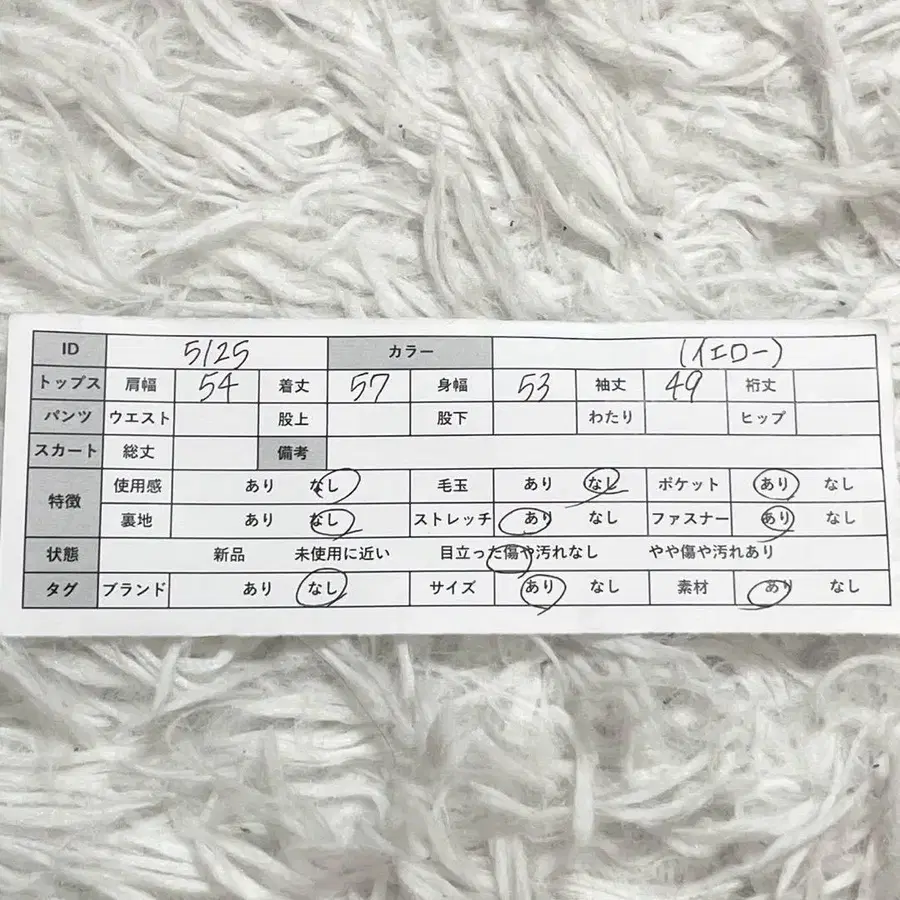 ID 5125 カラー (イエロー)
トップス 肩幅 54 着丈 57 身幅 53 袖丈 49 裄丈
パンツ ウエスト 股上 股下 わたり ヒップ
スカート 総丈 備考
特徴 使用感 あり なし 毛玉 あり なし ポケット あり なし
裏地 あり なし ストレッチ あり なし ファスナー あり なし
状態 新品 未使用に近い 目立った傷や汚れなし やや傷や汚れあり
タグ ブランド あり なし サイズ あり なし 素材 あり なし